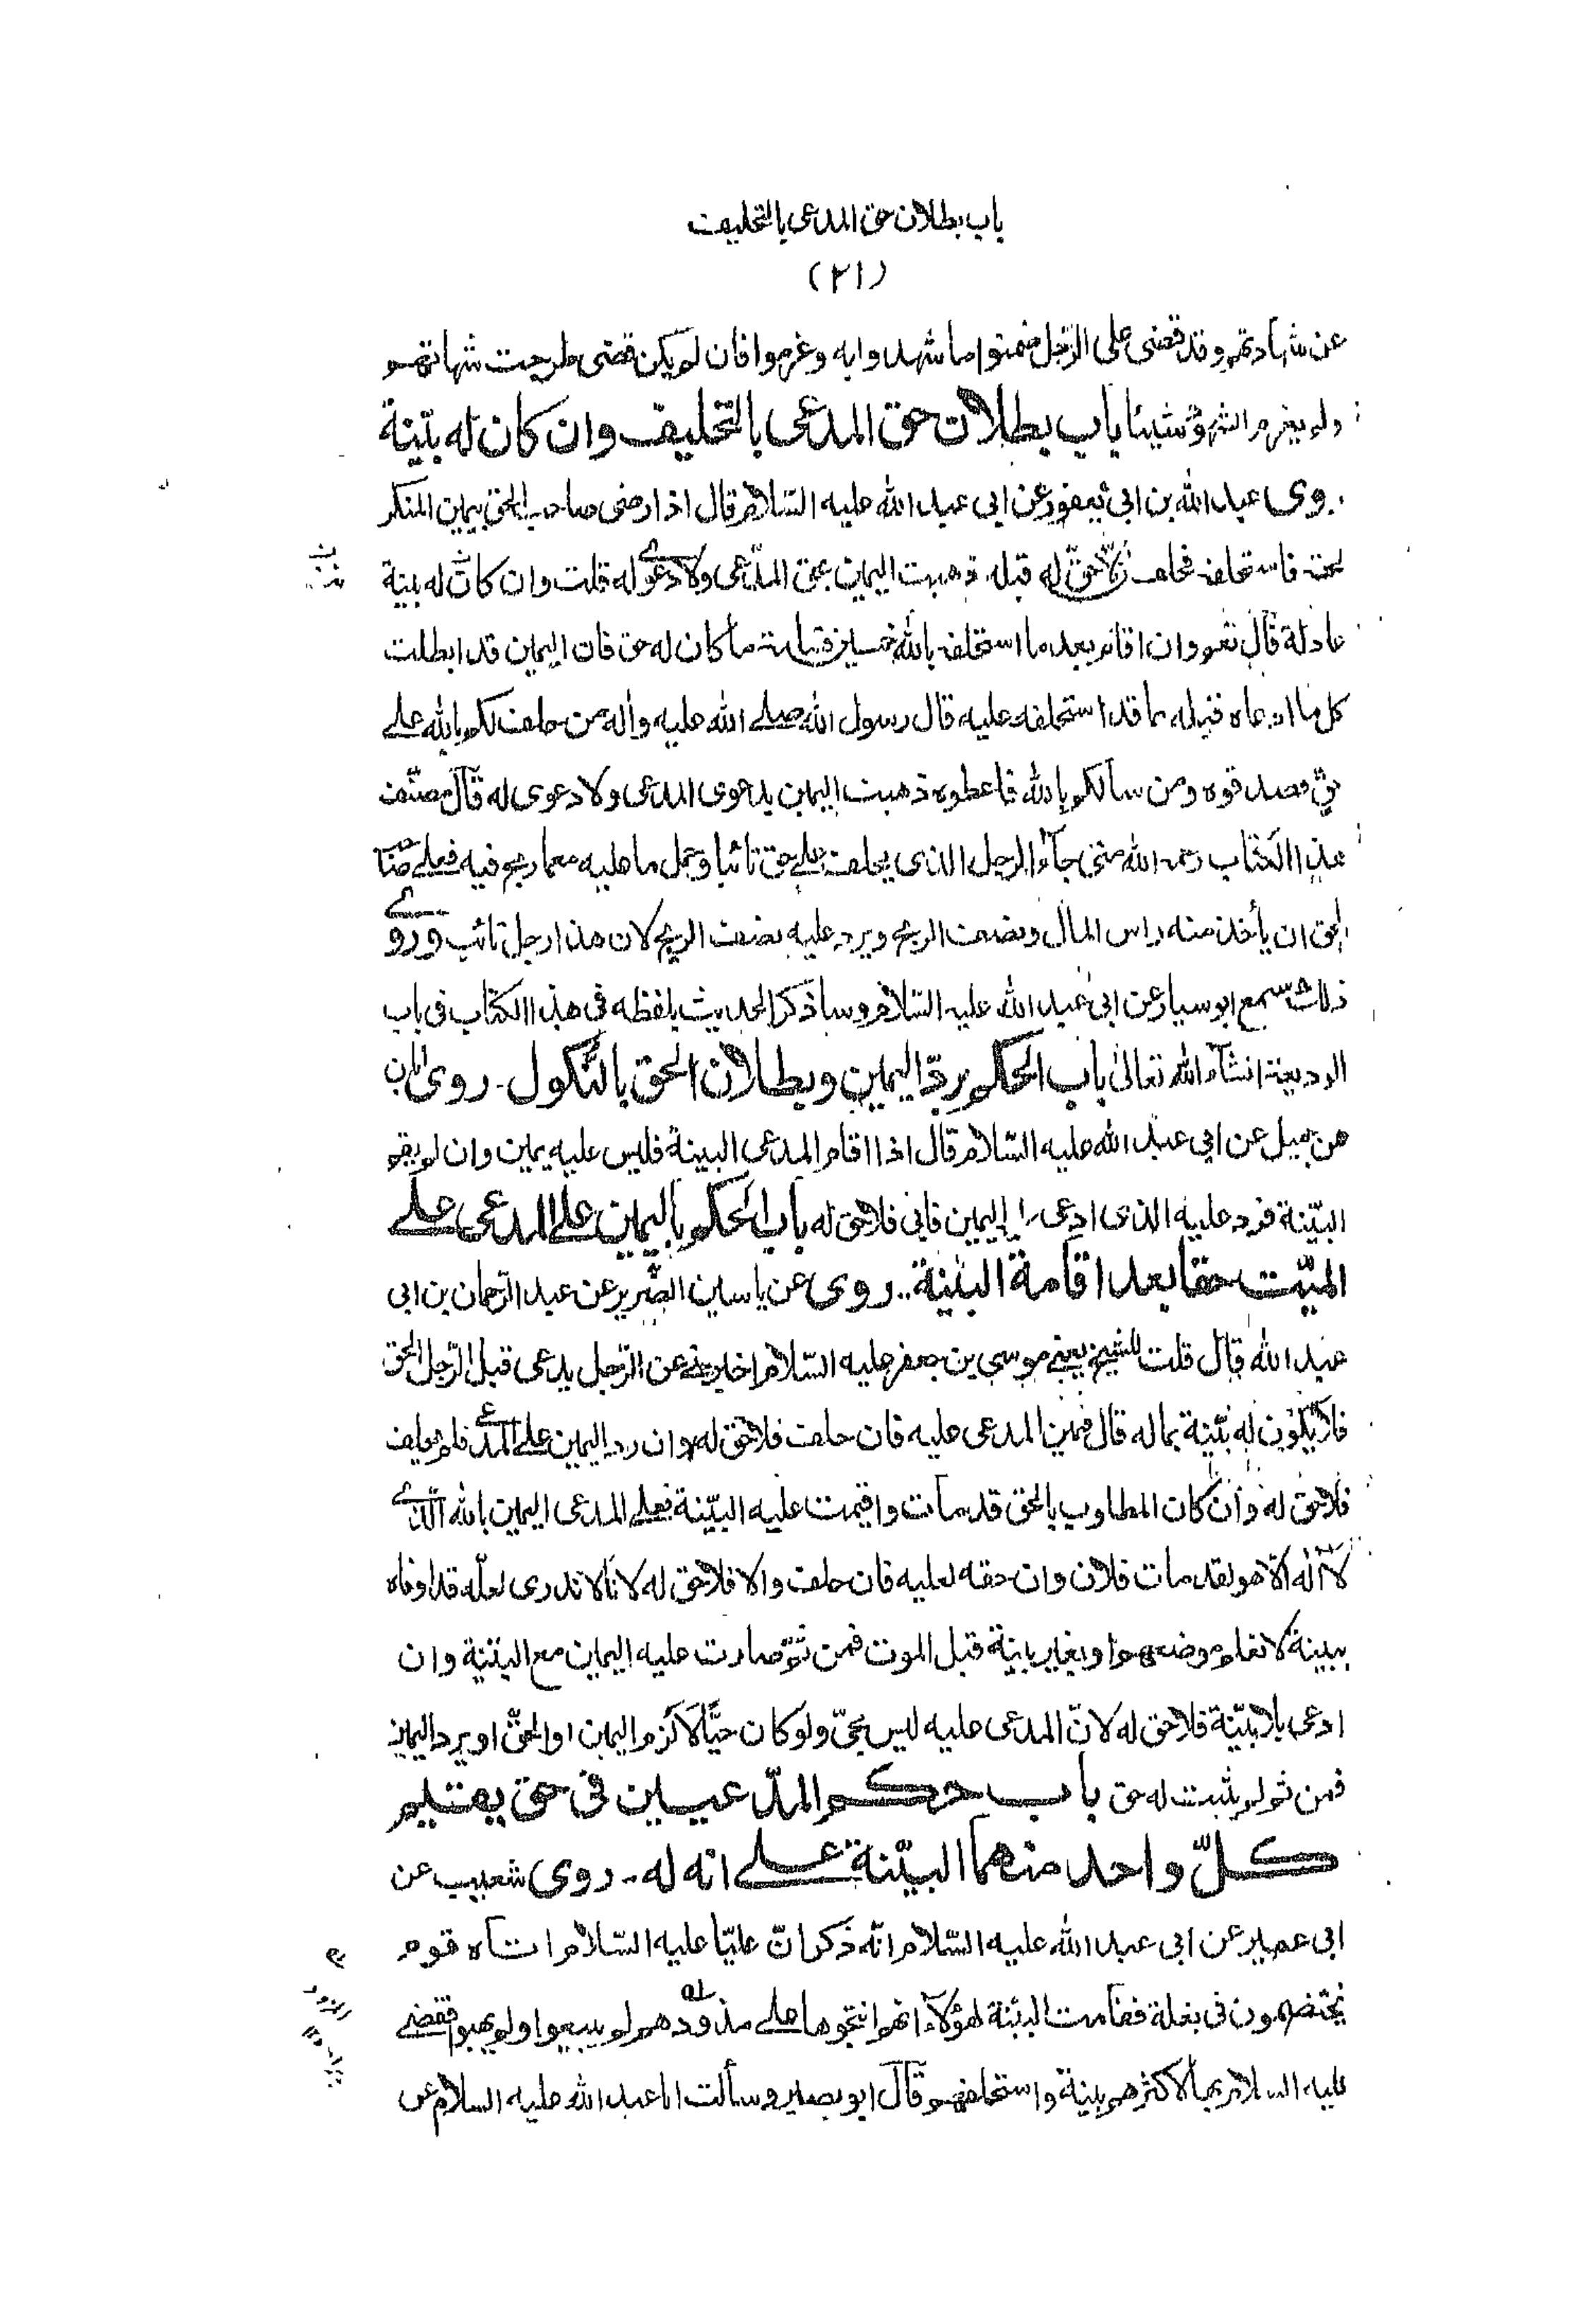 باب بطلان حق المدعى بالتحليف
(٢١)
عن شهادتهم وقد قضى على الرّجل ضمنوا ما شهدوا به وغرموا فان لم يكن قضى طرحت شهاتهم
ولم يغرم الشهود شيئا باب بطلان حق المدعى بالتحليف وان كان له بيّنة
روى عبد الله بن ابى يعفور عن ابى عبد الله عليه السّلام قال اذا رضى صاحب الحق بيمين المنكر
لحقه فاستحلفه فحلف ان لا حقّ له قبله ذهبت اليمين بحق المدّعى ولا دعوى له قلت وان كانت له بينة
عادلة قال نعم وان اقام بعد ما استحلفه بالله خمسين قسامة ما كان له حق فان اليمين قد ابطلت
كل ما ادعاه قبله مما قد استحلفه عليه قال رسول الله صلى الله عليه واله من حلف لكم بالله على
حق فصدقوه ومن سألكم بالله فاعطوه ذهبت اليمين بدعوى المدعى ولا دعوى له قال مصنّف
هذا الكتاب رحمه الله متى جآء الرجل الذى يحلف على حق تائبا وحمل ما عليه مع ما ربح فيه فعلى صاحب
الحق ان يأخذ منه راس المال ونصف الربح ويرد عليه نصف الربح لان هذا رجل تائب وروى
ذلك مسمع ابو سيار عن ابى عبد الله عليه السّلام وساذكر الحديث بلفظه فى هذا الكتاب فى باب
الوديعة انشآء الله تعالى باب الحكم بردّ اليمين وبطلان الحق بالنّكول - روى ابان
عن جميل عن ابى عبد الله عليه السّلام قال اذا اقام المدعى البينة فليس عليه يمين وان لم يقم
البيّنة فرد عليه الذى ادعى عليه اليمين فابى فلا حق له باب الحكم باليمين على المدعى على
الميّت حقا بعد اقامة البيّنة - روى عن ياسين الضّرير عن عبد الرّحمان بن ابى
عبد الله قال قلت للشيخ يعنى موسى بن جعفر عليه السّلام اخبرنى عن الرّجل يدعى قبل الرّجل الحق
فلا يكون له بيّنة بماله قال فيمين المدعى عليه فان حلف فلا حق له وان رد اليمين على المدّعى فلم يحلف
فلا حق له وان كان المطلوب بالحق قد مات واقيمت عليه البيّنة فعلى المدعى اليمين بالله الّذى
لا اله الّا هو لقد مات فلان وان حقه لعليه فان حلف والا فلا حق له لانّا لا ندرى لعلّه قد اوفاه
ببينة لا نعلم موضعها او بغير بينة قبل الموت فمن ثمّ صارت عليه اليمين مع البيّنة وان
ادعى بلا بيّنة فلا حق له لانّ المدعى عليه ليس بحىّ ولو كان حيّا لالزم اليمين او الحقّ او يرد اليمين
فمن ثم لم يثبت له حق باب حكم المدّعيين فى حق يقيم
كلّ واحد منهما البيّنة على انه له - روى شعيب عن
ابى عن ابى عبد الله عليه السّلام انّه ذكر انّ عليّا عليه السّلام اتاه قوم
يختصمون فى بغلة فقامت البيّنة لهؤلآء انهم انتجوها على مذودهم لم يبيعوا ولم يهبوا فقضى
عليه السلام بها لاكثرهم بينة واستحلفهم قال ابو بصير وسألت ابا عبد الله عليه السلام عن